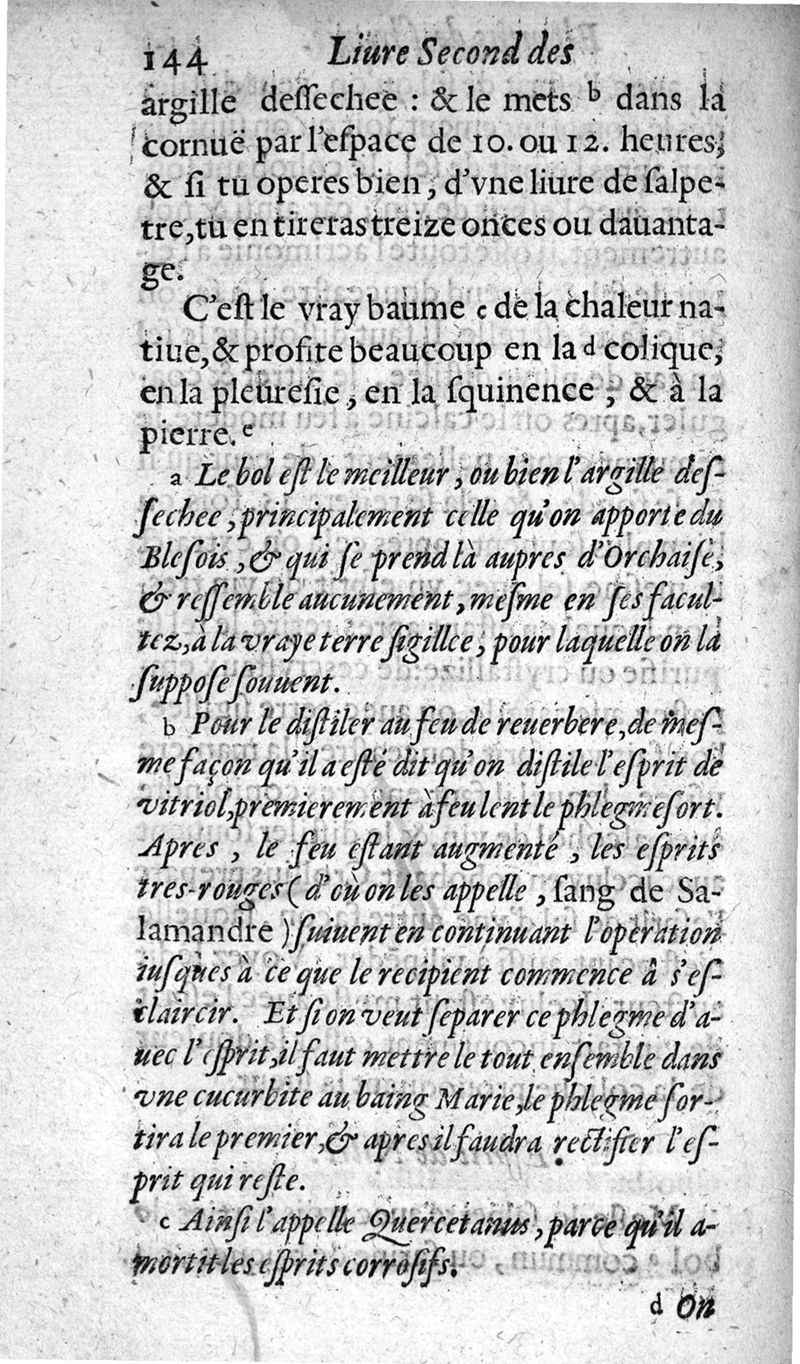 144 Liure Second des
argille desſechee : & le mets b dans la
cornuë par l'eſpace de 10. ou 12. heures,
& ſi tu operes bien, d'vne liure de ſalpe-
tre, tu en tireras treize onces ou dauanta-
ge.
C'eſt le vray baume c de la chaleur na-
tiue, & profite beaucoup en la d colique,
en la pleureſie, en la ſquinence, & à la
pierre. e
a Le bol eſt le meilleur, ou bien l'argille deſ-
ſechee, principalement celle qu'on apporte du
Bleſois, & qui ſe prend là aupres d'Orchaiſe,
& reſſemble aucunement, meſme en ſes facul-
tez, à la vraye terre ſigillee, pour laquelle on la
ſuppoſe ſouuent.
b Pour le diſtiler au feu de reuerbere, de meſ-
me façon qu'il a eſté dit qu'on diſtile l'eſprit de
vitriol, premierement à feu lent le phlegme ſort.
Apres, le feu eſtant augmenté, les eſprits
tres-rouges (d'où on les appelle, ſang de Sa-
lamandre) ſuiuent en continuant l'operation
iuſques à ce que le recipient commence â s'eſ-
claircir. Et ſi on veut ſeparer ce phlegme d'a-
uec l'eſprit, il faut mettre le tout enſemble dans
vne cucurbite au baing Marie, le phlegme ſor-
tira le premier, & apres il faudra rectifier l'eſ-
prit qui reſte.
c Ainſi l'appelle Quercetanus, parce qu'il a-
mortit les eſprits corroſifs.
d On